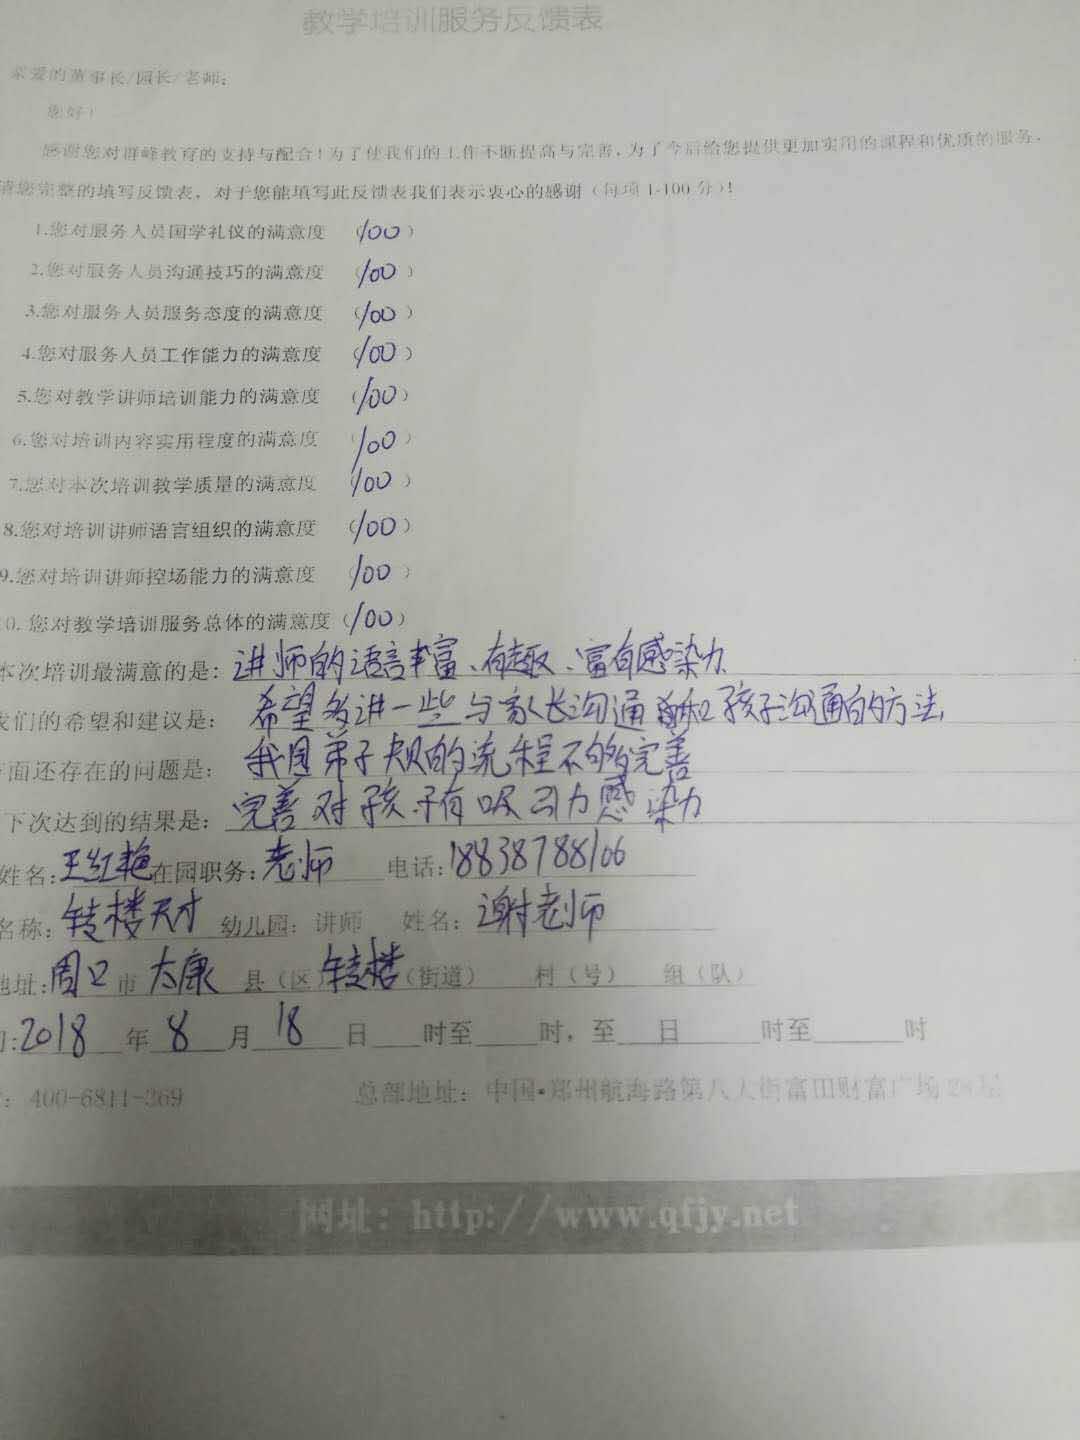 教学培训服务反馈表
亲爱的董事长/园长/老师：
您好！
感谢您对群峰教育的支持与配合！为了使我们的工作不断提高与完善，为了今后给您提供更加实用的课程和优质的服务，
请您完整的填写反馈表，对于您能填写此反馈表我们表示衷心的感谢（每项1-100分）！
1.您对服务人员国学礼仪的满意度 （100）
2.您对服务人员沟通技巧的满意度 （100）
3.您对服务人员服务态度的满意度 （100）
4.您对服务人员工作能力的满意度 （100）
5.您对教学讲师培训能力的满意度 （100）
6.您对培训内容实用程度的满意度 （100）
7.您对本次培训教学质量的满意度 （100）
8.您对培训讲师语言组织的满意度 （100）
9.您对培训讲师控场能力的满意度 （100）
0.您对教学培训服务总体的满意度（100）
本次培训最满意的是：讲师的语言丰富、有趣、富有感染力
我们的希望和建议是：希望多讲一些与家长沟通和孩子沟通的方法
面还存在的问题是：我园弟子规的流程不够完善
下次达到的结果是：完善对孩子有吸引力感染力
姓名：王红艳在园职务：老师 电话：18838788106
名称：转楼天才 幼儿园：讲师 姓名：谢老师
地址：周口市太康县（区）转楼（街道） 村（号） 组（队）
：2018年8月18日 时至 时，至 日 时至 时
：400-6811-269 总部地址：中国·郑州航海路第八大街富田财富广场28层
网址：http://www.qfjy.net